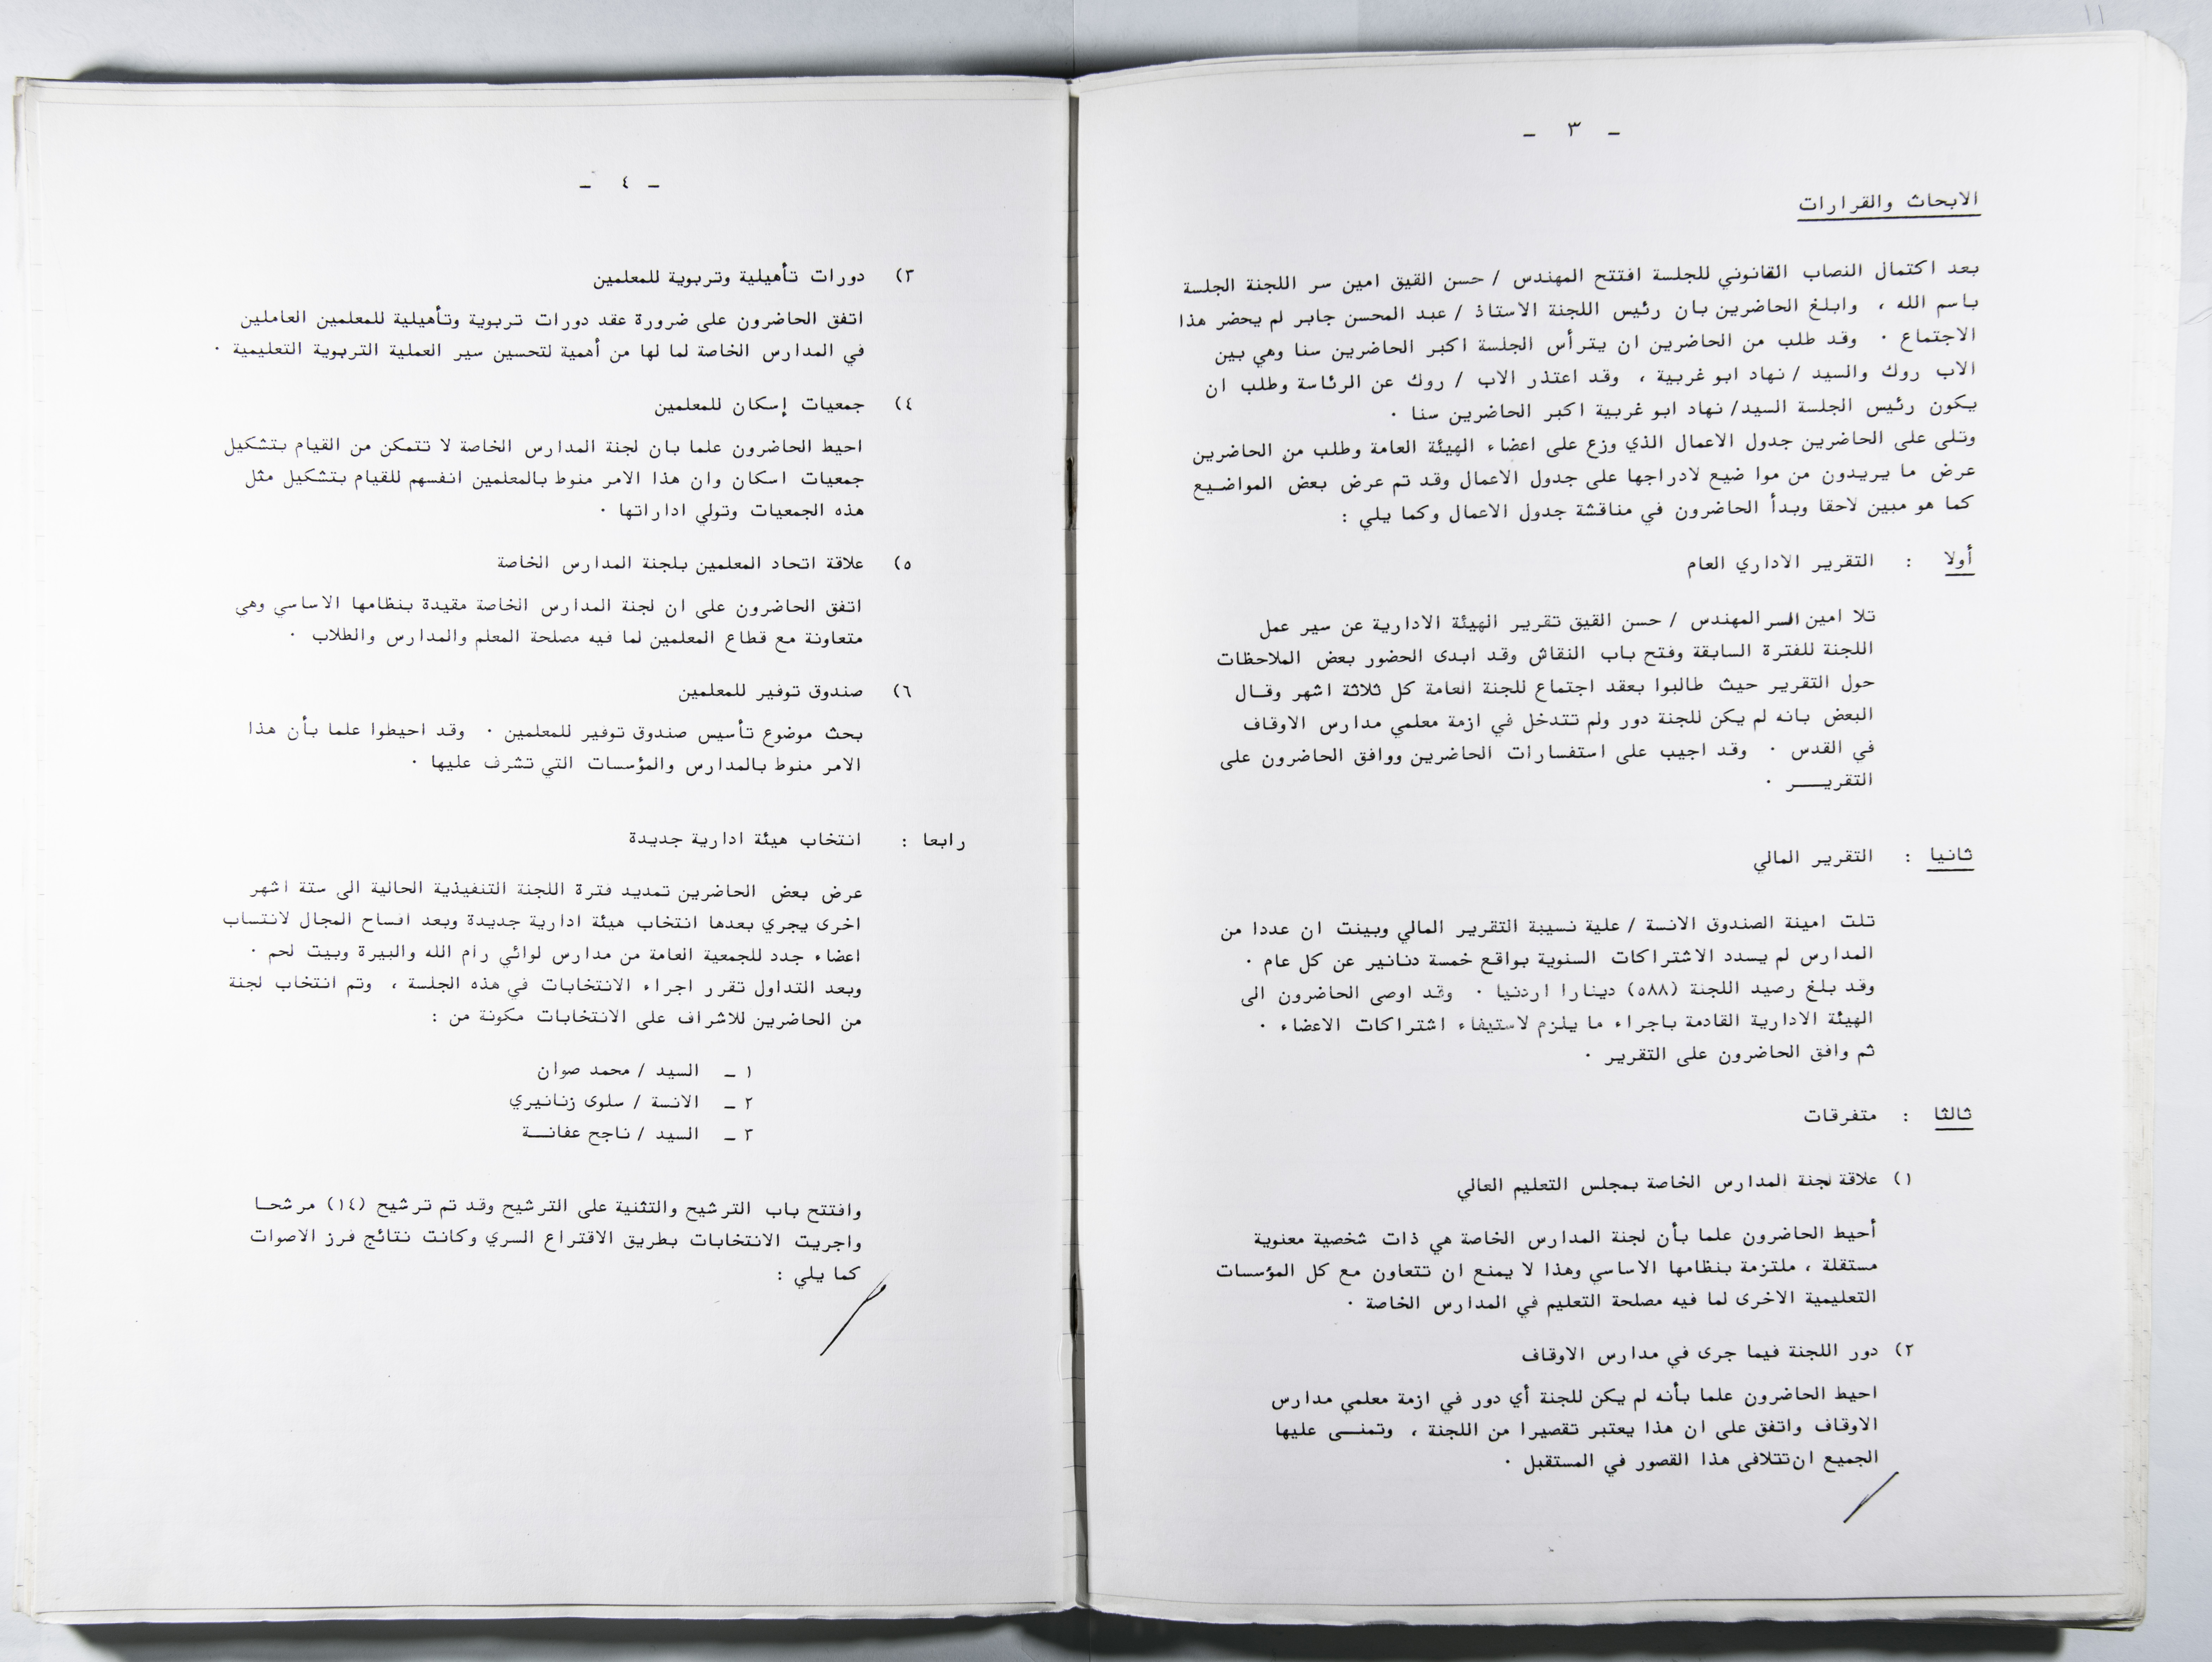 ١١
ـ ٣ ـ
الابحاث والقرارات
بعد اكتمال النصاب القانوني للجلسة افتتح المهندس / حسن القيق امين سر اللجنة الجلسة
باسم الله ، وابلغ الحاضرين بان رئيس اللجنة الاستاذ / عبد المحسن جابر لم يحضر هذا
الاجتماع . وقد طلب من الحاضرين ان يترأس الجلسة اكبر الحاضرين سنا وهي بين
الاب روك والسيد / نهاد ابو غربية ، وقد اعتذر الاب / روك عن الرئاسة وطلب ان
يكون رئيس الجلسة السيد/ نهاد ابو غربية اكبر الحاضرين سنا .
وتلى على الحاضرين جدول الاعمال الذي وزع على اعضاء الهيئة العامة وطلب من الحاضرين
عرض ما يريدون من موا ضيع لادراجها على جدول الاعمال وقد تم عرض بعض المواضيع
كما هو مبين لاحقا وبدأ الحاضرون في مناقشة جدول الاعمال وكما يلي :
أولا : التقرير الاداري العام
تلا امين السر المهندس / حسن القيق تقرير الهيئة الادارية عن سير عمل
اللجنة للفترة السابقة وفتح باب النقاش وقد ابدى الحضور بعض الملاحظات
حول التقرير حيث طالبوا بعقد اجتماع للجنة العامة كل ثلاثة اشهر وقـال
البعض بانه لم يكن للجنة دور ولم تتدخل في ازمة معلمي مدارس الاوقاف
في القدس . وقد اجيب على استفسارات الحاضرين ووافق الحاضرون على
التقريـــر .
ثانيا : التقرير المالي
تلت امينة الصندوق الانسة / علية نسيبة التقرير المالي وبينت ان عددا من
المدارس لم يسدد الاشتراكات السنوية بواقع خمسة دنانير عن كل عام .
وقد بلغ رصيد اللجنة (٥٨٨) دينارا اردنيا . وقد اوصى الحاضرون الى
الهيئة الادارية القادمة باجراء ما يلزم لاستيفاء اشتراكات الاعضاء .
ثم وافق الحاضرون على التقرير .
ثالثا : متفرقات
١) علاقة لجنة المدارس الخاصة بمجلس التعليم العالي
أحيط الحاضرون علما بأن لجنة المدارس الخاصة هي ذات شخصية معنوية
مستقلة ، ملتزمة بنظامها الاساسي وهذا لا يمنع ان تتعاون مع كل المؤسسات
التعليمية الاخرى لما فيه مصلحة التعليم في المدارس الخاصة .
٢) دور اللجنة فيما جرى في مدارس الاوقاف
احيط الحاضرون علما بأنه لم يكن للجنة أي دور في ازمة معلمي مدارس
الاوقاف واتفق على ان هذا يعتبر تقصيرا من اللجنة ، وتمنــى عليها
الجميع ان تتلافى هذا القصور في المستقبل .
ـ ٤ ـ
٣) دورات تأهيلية وتربوية للمعلمين
اتفق الحاضرون على ضرورة عقد دورات تربوية وتأهيلية للمعلمين العاملين
في المدارس الخاصة لما لها من أهمية لتحسين سير العملية التربوية التعليمية .
٤) جمعيات إسكان للمعلمين
احيط الحاضرون علما بان لجنة المدارس الخاصة لا تتمكن من القيام بتشكيل
جمعيات اسكان وان هذا الامر منوط بالمعلمين انفسهم للقيام بتشكيل مثل
هذه الجمعيات وتولي اداراتها .
٥) علاقة اتحاد المعلمين بلجنة المدارس الخاصة
اتفق الحاضرون على ان لجنة المدارس الخاصة مقيدة بنظامها الاساسي وهي
متعاونة مع قطاع المعلمين لما فيه مصلحة المعلم والمدارس والطلاب .
٦) صندوق توفير للمعلمين
بحث موضوع تأسيس صندوق توفير للمعلمين . وقد احيطوا علما بأن هذا
الامر منوط بالمدارس والمؤسسات التي تشرف عليها .
رابعا : انتخاب هيئة ادارية جديدة
عرض بعض الحاضرين تمديد فترة اللجنة التنفيذية الحالية الى ستة اشهر
اخرى يجري بعدها انتخاب هيئة ادارية جديدة وبعد افساح المجال لانتساب
اعضاء جدد للجمعية العامة من مدارس لوائي رام الله والبيرة وبيت لحم .
وبعد التداول تقرر اجراء الانتخابات في هذه الجلسة ، وتم انتخاب لجنة
من الحاضرين للاشراف على الانتخابات مكونة من :
١ ـ السيد / محمد صوان
٢ ـ الانسة / سلوى زنانيري
٣ ـ السيد / ناجح عفانــة
وافتتح باب الترشيح والتثنية على الترشيح وقد تم ترشيح (١٤) مرشحـا
واجريت الانتخابات بطريق الاقتراع السري وكانت نتائج فرز الاصوات
كما يلي :